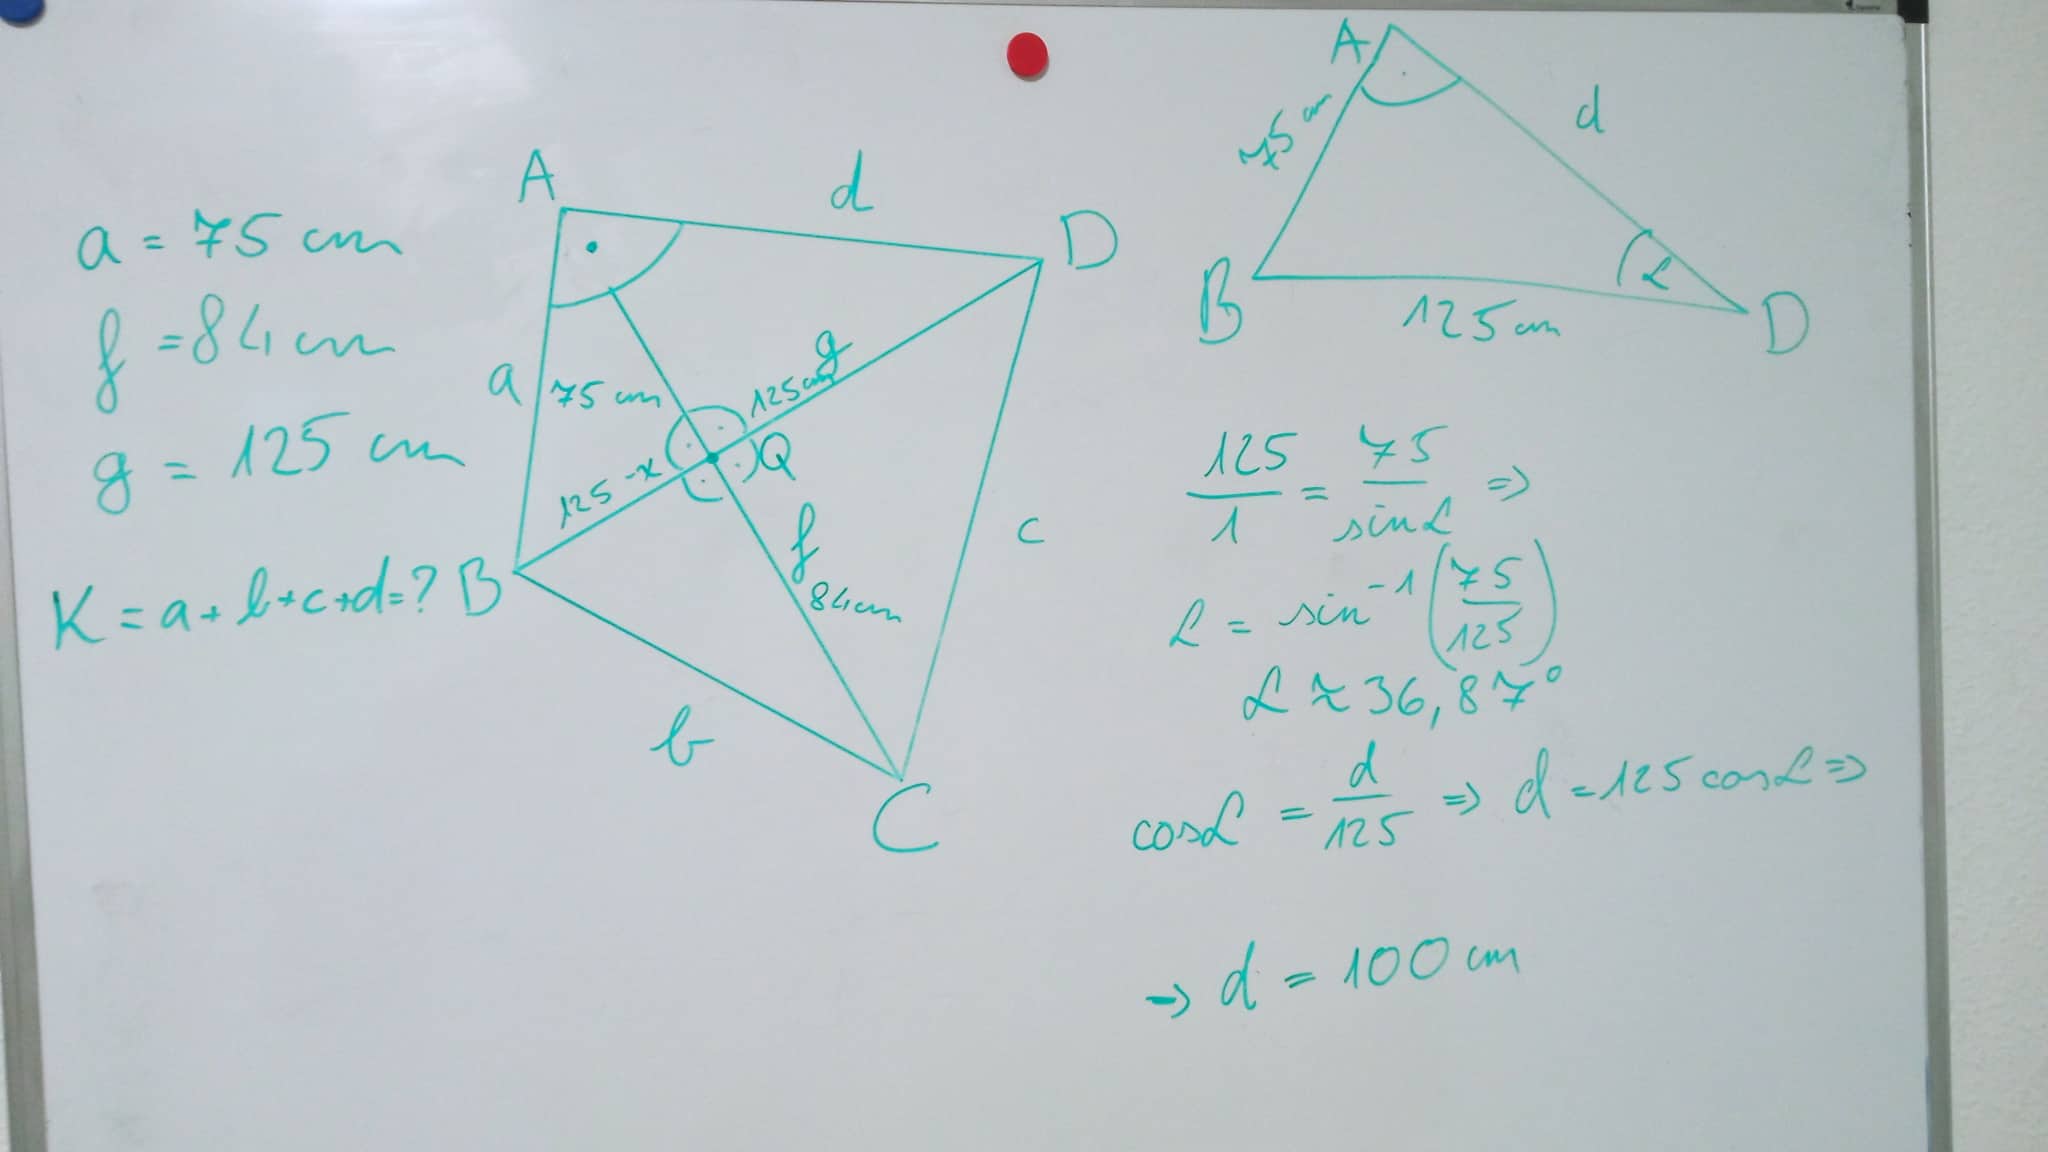 a = 75 cm
f = 84 cm
g = 125 cm
K = a + b + c + d = ?
A
d
D
a
75 cm
125 cm
g
125 - x
Q
f
84 cm
c
B
b
C
A
75 cm
d
B
125 cm
α
D
125/1 = 75/sin α ⇒
α = sin⁻¹(75/125)
α ≈ 36,87°
cos α = d/125 ⇒ d = 125 cos α ⇒
→ d = 100 cm